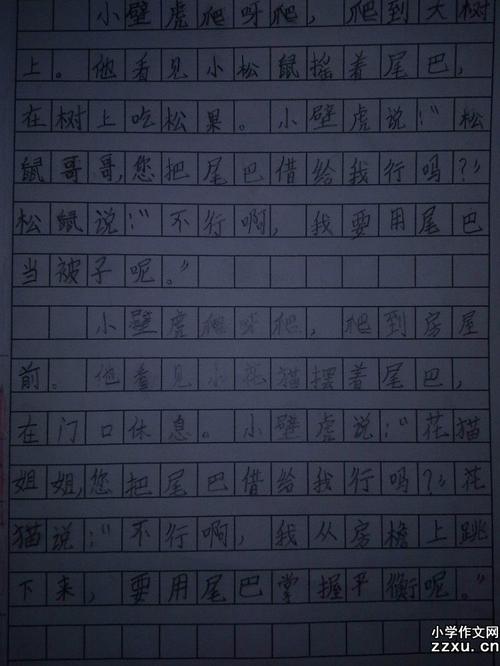 小壁虎爬呀爬，爬到大树
上。他看见小松鼠摇着尾巴，
在树上吃松果。小壁虎说：“松
鼠哥哥，您把尾巴借给我行吗？”
松鼠说：“不行啊，我要用尾巴
当被子呢。”
小壁虎爬呀爬，爬到房屋
前。他看见小花猫摆着尾巴，
在门口休息。小壁虎说：“花猫
姐姐，您把尾巴借给我行吗？”花
猫说：“不行啊，我从房檐上跳
下来，要用尾巴掌握平衡呢。”
小学作文网
zzxu.cn